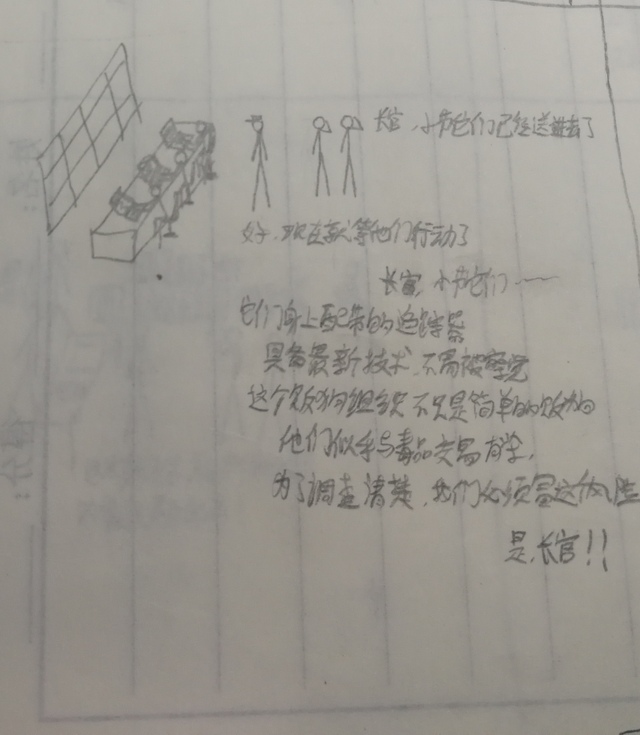 长官,小节它们已经送进去了
好,现在就等他们行动了
长官,小节它们……
它们身上配带的追踪器
具备最新技术,不易被察觉
这个贩狗组织不只是简单的贩狗
他们似乎与毒品交易有关,
为了调查清楚,我们必须冒这个风险
是,长官!!